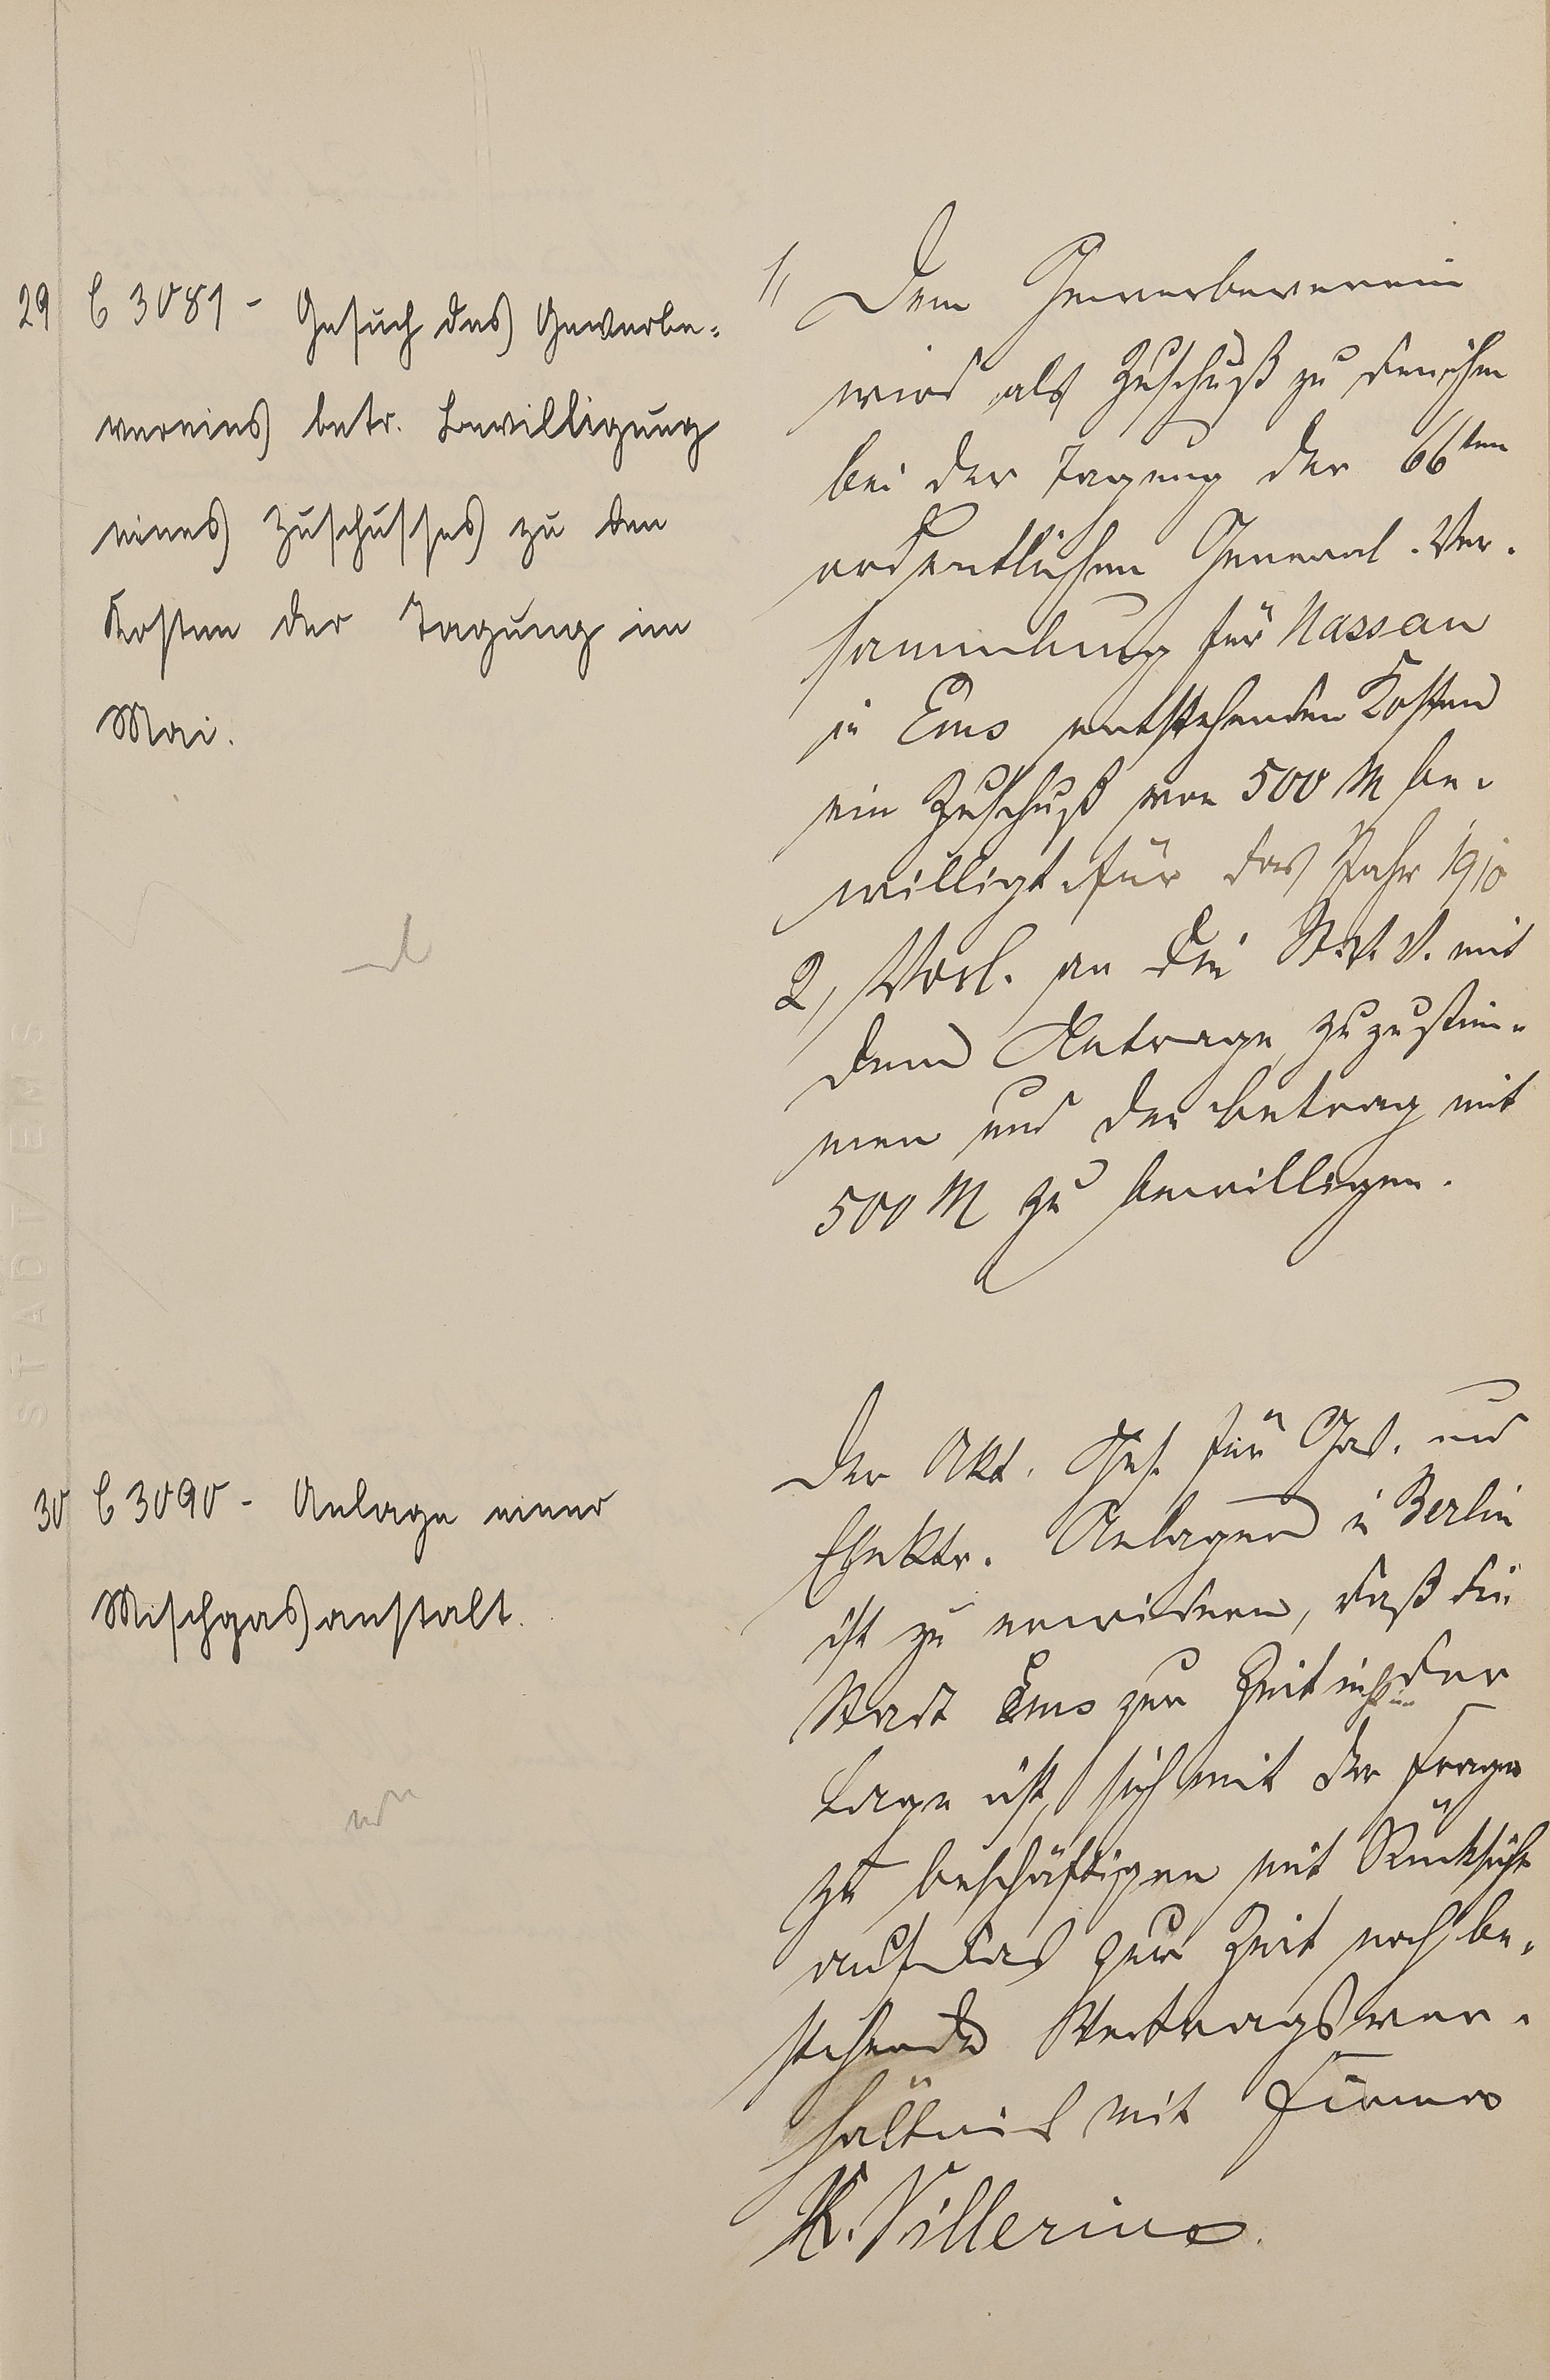 29 C 3081 - Gesuch des Gewerbe-
vereins betr. Bewilligung
eines Zuschusses zu den
Kosten der Tagung im
Mai.
1, Dem Gewerbeverein
wird als Zuschuß zu den ihm
bei der Tagung der 66ten
ordentlichen General-Ver-
sammlung für Nassau
in Ems entstehenden Kosten
ein Zuschuß von 500 M be-
willigt für das Jahr 1910
2, Vorl. an die St. V. V. mit
dem Antrage zuzustim-
men und den Betrag mit
500 M zu bewilligen.
30 C 3090 - Anlage einer
Mischgasanstalt.
Der Akt. Ges. für Gas- und
Elektr. Anlagen in Berlin
ist zu erwidern, daß die
Stadt Ems zur Zeit nicht in der
Lage ist, sich mit der Frage
zu beschäftigen mit Rücksicht
auf das zur Zeit noch be-
stehende Vertragsver-
hältnis mit Firma
K. Villerius.
STADT EMS